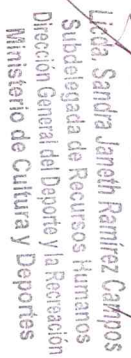 Licda. Sandra Janeth Ramírez Campos
Subdelegada de Recursos Humanos
Dirección General del Deporte y la Recreación
Ministerio de Cultura y Deportes